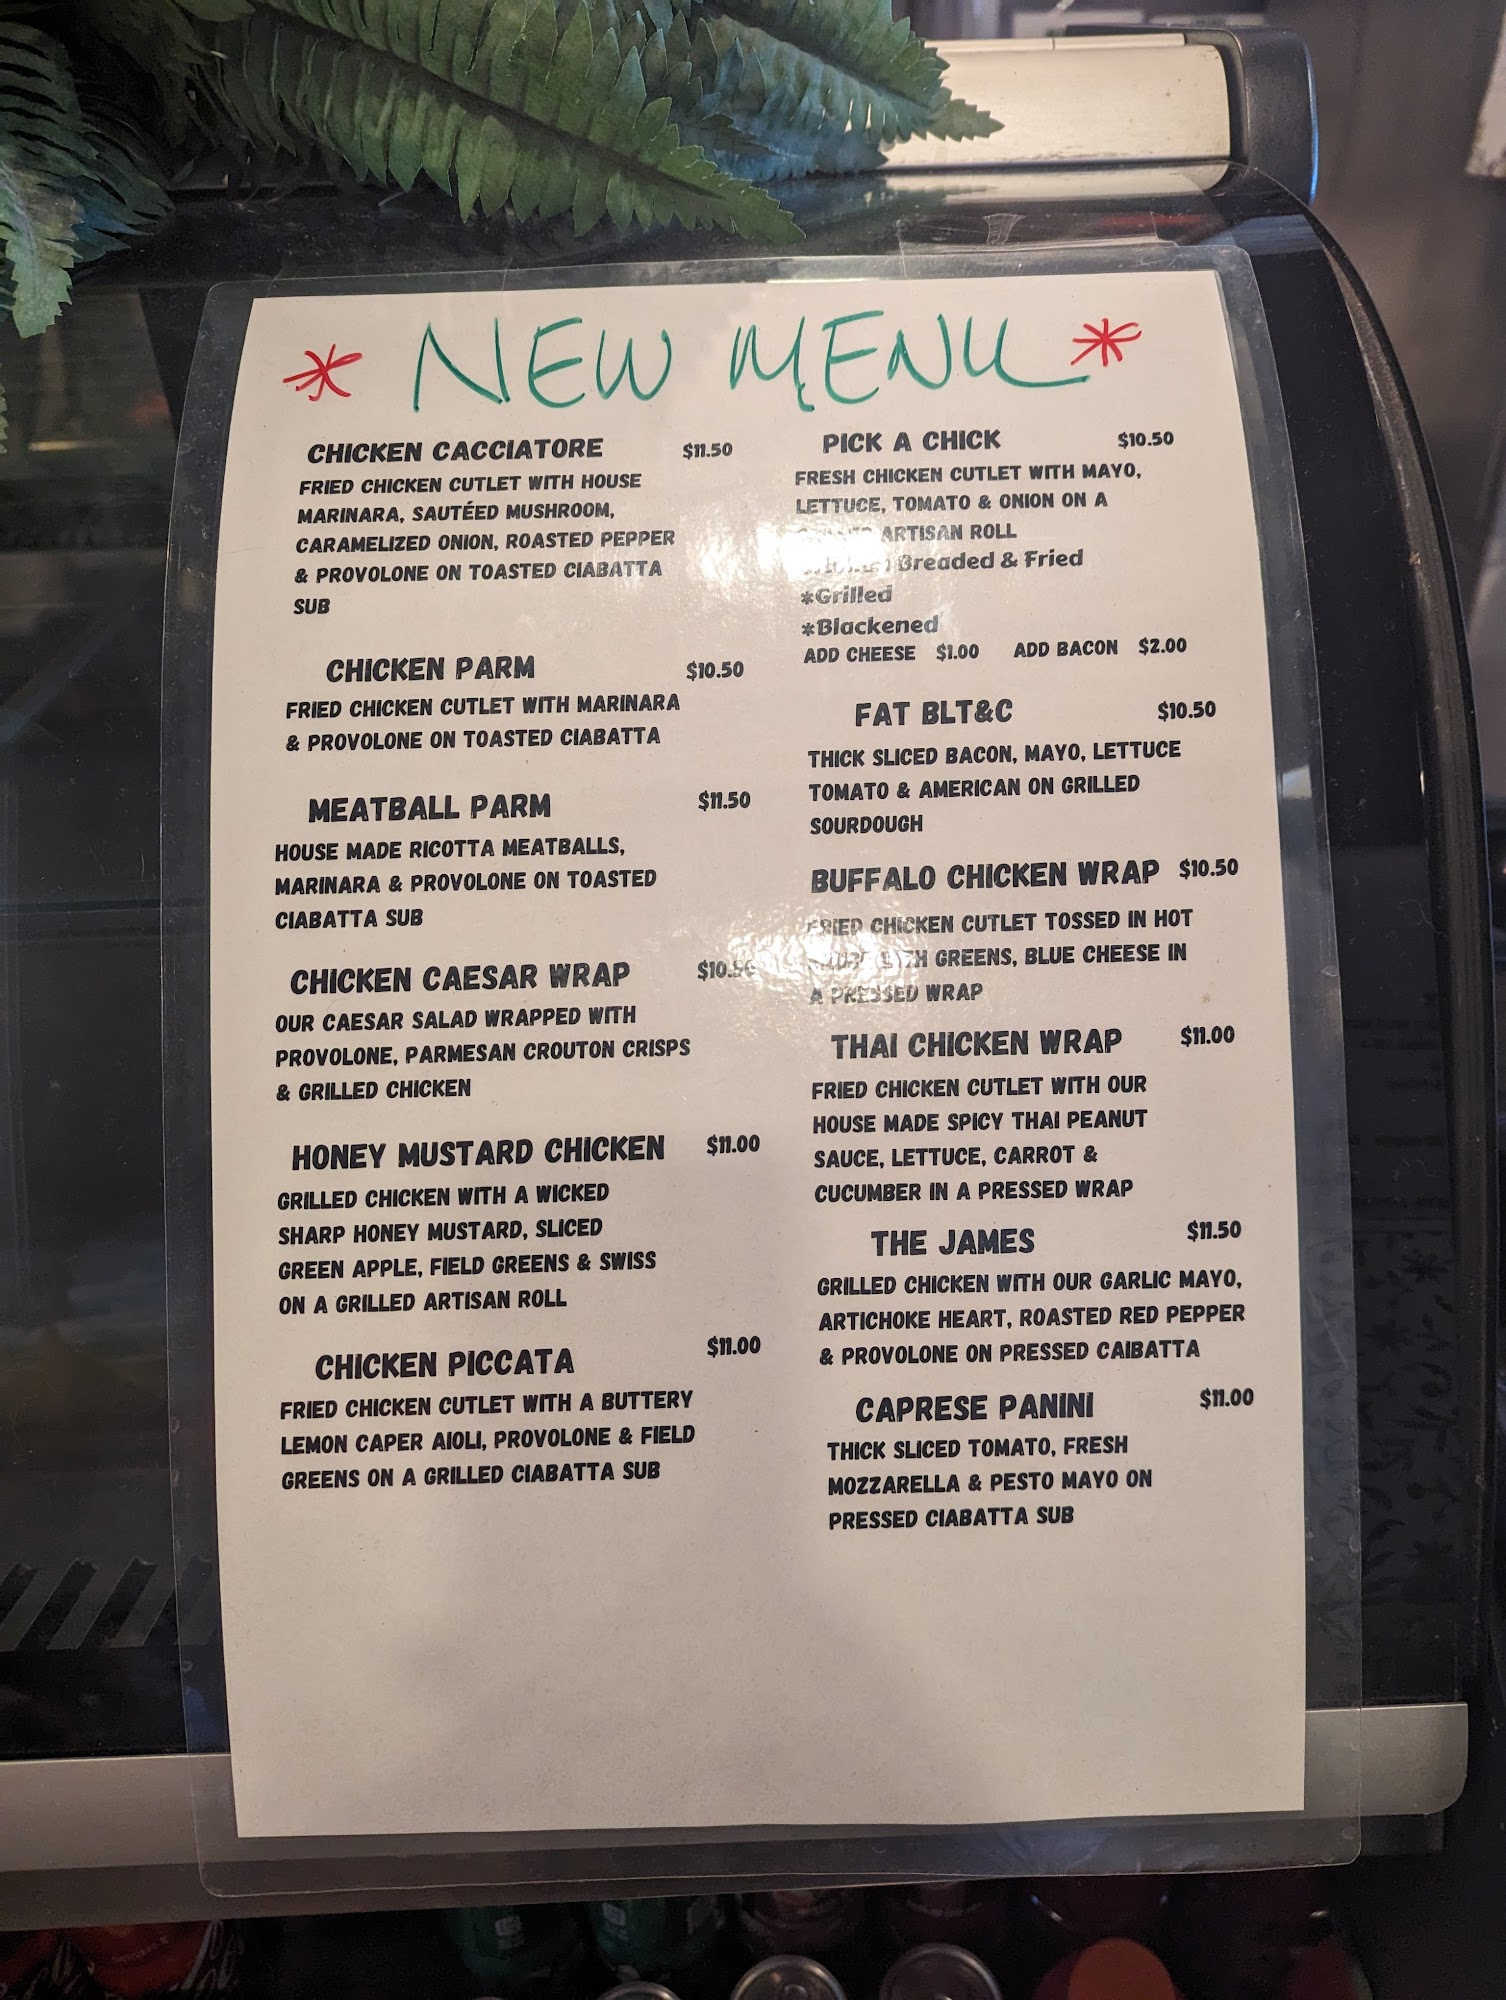 * NEW MENU *
CHICKEN CACCIATORE $11.50
FRIED CHICKEN CUTLET WITH HOUSE
MARINARA, SAUTÉED MUSHROOM,
CARAMELIZED ONION, ROASTED PEPPER
& PROVOLONE ON TOASTED CIABATTA
SUB
CHICKEN PARM $10.50
FRIED CHICKEN CUTLET WITH MARINARA
& PROVOLONE ON TOASTED CIABATTA
MEATBALL PARM $11.50
HOUSE MADE RICOTTA MEATBALLS,
MARINARA & PROVOLONE ON TOASTED
CIABATTA SUB
CHICKEN CAESAR WRAP $10.50
OUR CAESAR SALAD WRAPPED WITH
PROVOLONE, PARMESAN CROUTON CRISPS
& GRILLED CHICKEN
HONEY MUSTARD CHICKEN $11.00
GRILLED CHICKEN WITH A WICKED
SHARP HONEY MUSTARD, SLICED
GREEN APPLE, FIELD GREENS & SWISS
ON A GRILLED ARTISAN ROLL
CHICKEN PICCATA $11.00
FRIED CHICKEN CUTLET WITH A BUTTERY
LEMON CAPER AIOLI, PROVOLONE & FIELD
GREENS ON A GRILLED CIABATTA SUB
PICK A CHICK $10.50
FRESH CHICKEN CUTLET WITH MAYO,
LETTUCE, TOMATO & ONION ON A
ARTISAN ROLL
Breaded & Fried
*Grilled
*Blackened
ADD CHEESE $1.00 ADD BACON $2.00
FAT BLT&C $10.50
THICK SLICED BACON, MAYO, LETTUCE
TOMATO & AMERICAN ON GRILLED
SOURDOUGH
BUFFALO CHICKEN WRAP $10.50
FRIED CHICKEN CUTLET TOSSED IN HOT
SAUCE WITH GREENS, BLUE CHEESE IN
A PRESSED WRAP
THAI CHICKEN WRAP $11.00
FRIED CHICKEN CUTLET WITH OUR
HOUSE MADE SPICY THAI PEANUT
SAUCE, LETTUCE, CARROT &
CUCUMBER IN A PRESSED WRAP
THE JAMES $11.50
GRILLED CHICKEN WITH OUR GARLIC MAYO,
ARTICHOKE HEART, ROASTED RED PEPPER
& PROVOLONE ON PRESSED CAIBATTA
CAPRESE PANINI $11.00
THICK SLICED TOMATO, FRESH
MOZZARELLA & PESTO MAYO ON
PRESSED CIABATTA SUB